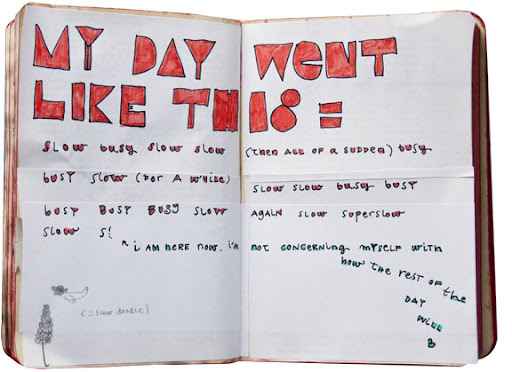 MY DAY WENT
LIKE THIS =
slow busy slow slow (then all of a sudden) busy
busy slow (for a while) slow slow busy busy
busy busy busy slow again slow superslow
slow s!
i am here now. i'm not concerning myself with
how the rest of the
day
will
B
(= slow doodle)